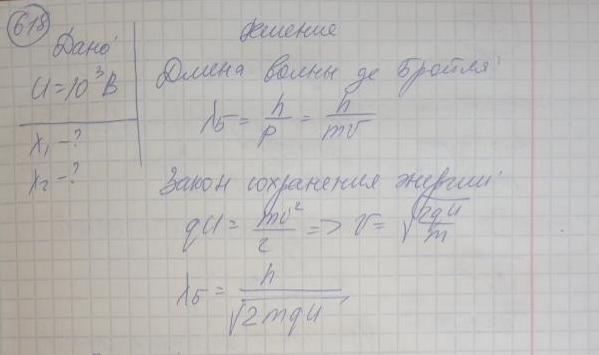 618
Дано:
U=10³В
x₁ -?
x₂ -?
Решение
Длина волны де Бройля:
λБ = h/p = h/mv
Закон сохранения энергии:
qU = mv²/2 => v = √(2qU/m)
λБ = h/√(2mqU),